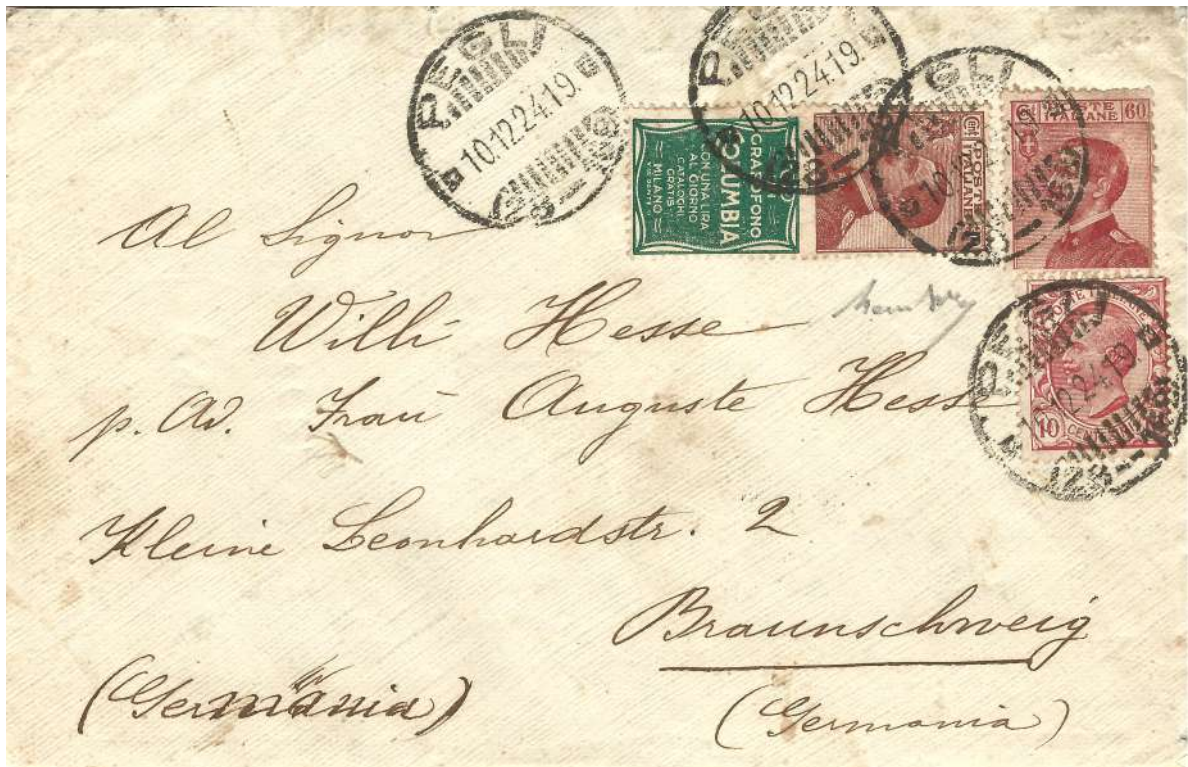 PEGLI
10.12.24.19.
(28 – 168)
PEGLI
10.12.24.19.
(28 –
GLI
(28 – 168)
GRAFOFONO
COLUMBIA
CON UNA LIRA
AL GIORNO
CATALOGHI
GRATIS
MILANO
POSTE
ITALIANE
POSTE 60
ITALIANE
Al Signor
Willi Hesse
p. Ad. Frau Auguste Hesse
PEGLI
10
(28 – 168)
Kleine Leonhardstr. 2
Braunschweig
(Germania) (Germania)